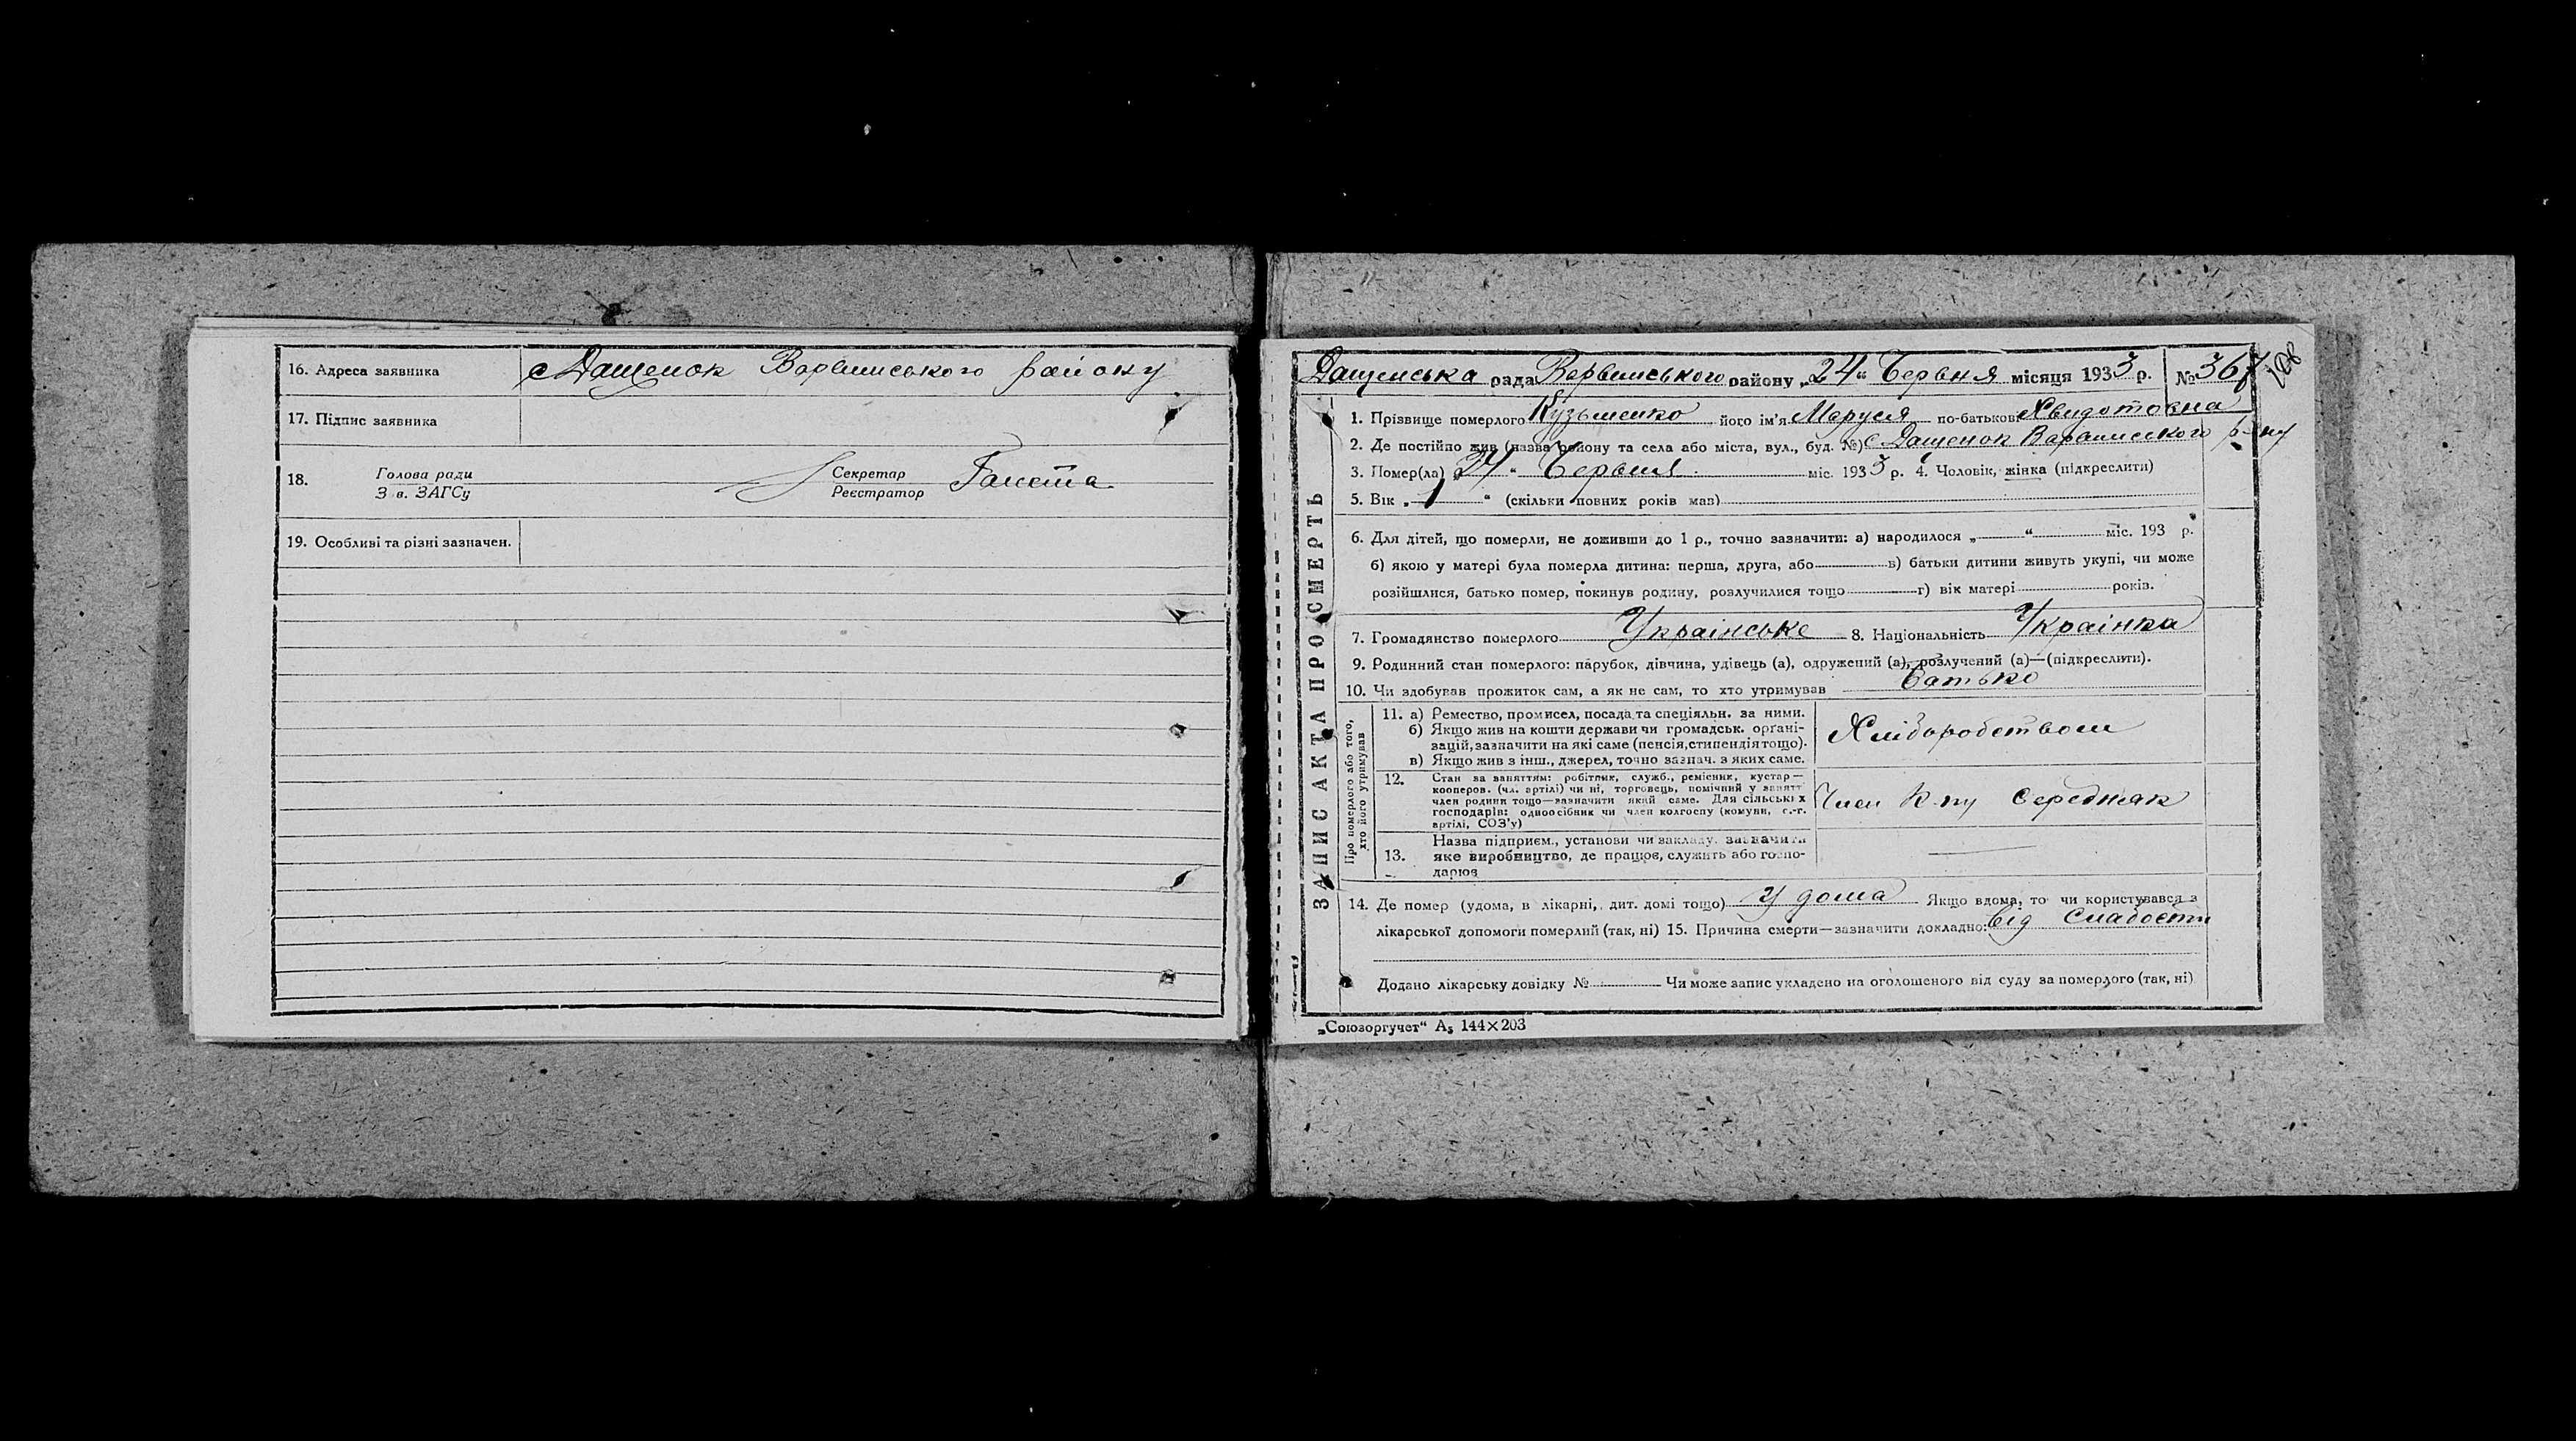 16. Адреса заявника с Дащенок Варвинського району
17. Підпис заявника
18. Голова ради Секретар
З в. ЗАГСу Реєстратор
19. Особливі та різні зазначен.
Дащенська рада Варвинського району „24“ Червня місяця 1933 р. № 367
ЗАПИС АКТА ПРО СМЕРТЬ
1. Прізвище померлого Кузьменко його ім'я Маруся по-батькові Хведотовна
2. Де постійно жив (назва району та села або міста, вул., буд. №) с Дащенок Варвинського р-ну
3. Помер(ла) „24“ Червня міс. 1933 р. 4. Чоловік, жінка (підкреслити)
5. Вік „1“ (скільки повних років мав)
6. Для дітей, що померли, не доживши до 1 р., точно зазначити: а) народилося „ “ міс. 193 р.
б) якою у матері була померла дитина: перша, друга, або в) батьки дитини живуть укупі, чи може
розійшлися, батько помер, покинув родину, розлучилися тощо г) вік матері років.
7. Громадянство померлого Українське 8. Національність Українка
9. Родинний стан померлого: парубок, дівчина, удівець (а), одружений (а), розлучений (а)—(підкреслити).
10. Чи здобував прожиток сам, а як не сам, то хто утримував батько
Про померлого або того,
хто його утримував
11. а) Ремество, промисел, посада та спеціяльн. за ними.
б) Якщо жив на кошти держави чи громадськ. органі-
зацій, зазначити на які саме (пенсія, стипендія тощо).
в) Якщо жив з інш., джерел, точно зазнач. з яких саме.
Хліборобством
12. Стан за заняттям: робітник, служб., ремісник, кустар—
кооперов. (чл. артілі) чи ні, торговець, помічний у занятт
член родини тощо—зазначити який саме. Для сільських
господарів: одноосібник чи член колгоспу (комуни, с.-г.
артілі, СОЗ'у)
Член к-пу Середняк
13. Назва підприєм., установи чи закладу, зазначити
яке виробництво, де працює, служить або госпо-
дарює
14. Де помер (удома, в лікарні, дит. домі тощо) У дома Якщо вдома, то чи користувався з
лікарської допомоги померлий (так, ні) 15. Причина смерти—зазначити докладно: від Слабости
Додано лікарську довідку № Чи може запис укладено на оголошеного від суду за померлого (так, ні)
„Союзоргучет“ А₅ 144×203